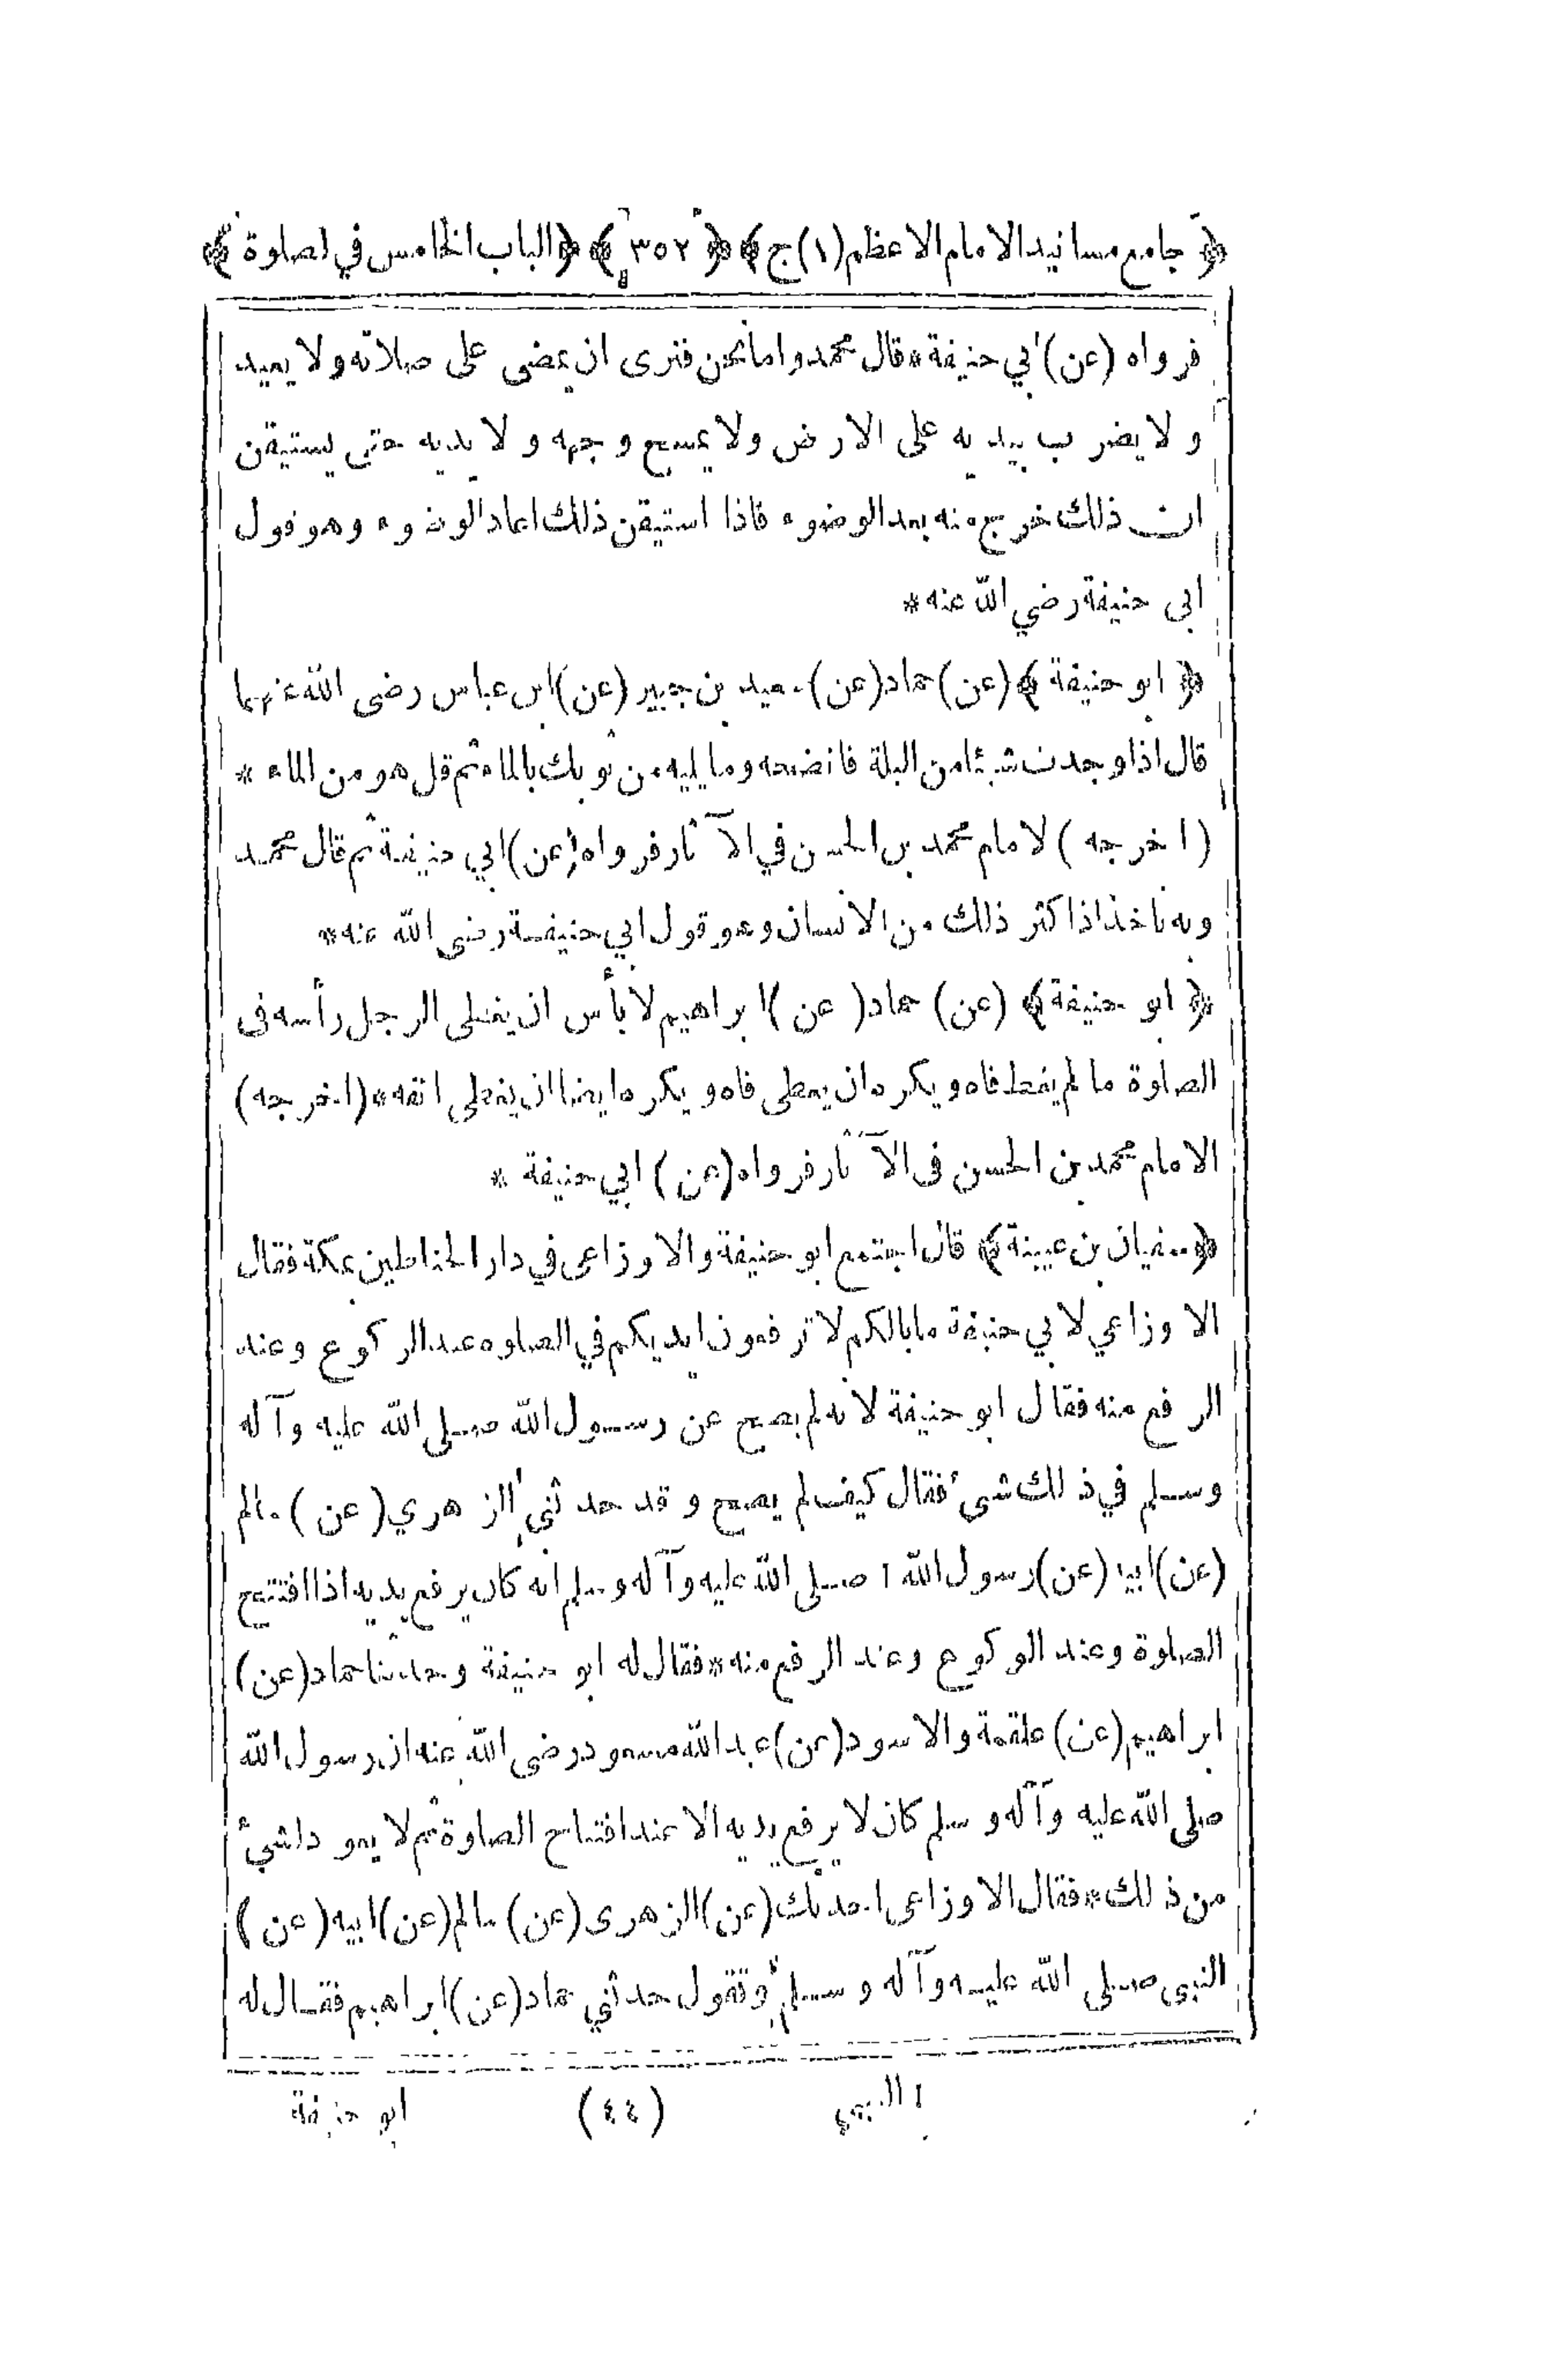 ﴿ جامع مسانيد الامام الاعظم (١) ج ﴾ ﴿ ٣٥٢ ﴾ ﴿ الباب الخامس في الصلوة ﴾
فرواه (عن) ابي حنيفة * قال محمد واما نحن فنرى ان يمضى على صلاته ولا يعيد
ولا يضرب بيديه على الارض ولا يمسح وجهه ولا يديه حتى يستيقن
ان ذلك خرج منه بعد الوضوء فاذا استيقن ذلك اعاد الوضوء وهو قول
ابى حنيفة رضي الله عنه *
﴿ ابو حنيفة ﴾ (عن) حماد (عن) سعيد بن جبير (عن) ابن عباس رضى الله عنهما
قال اذا وجدت شيئا من البلة فانضحه وما يليه من ثوبك بالماء ثم قل هو من الماء *
(اخرجه) الامام محمد بن الحسن في الآثار فرواه (عن) ابي حنيفة ثم قال محمد
وبه نأخذ اذا كثر ذلك من الانسان وهو قول ابي حنيفة رضى الله عنه *
﴿ ابو حنيفة ﴾ (عن) حماد (عن) ابراهيم لا بأس ان يغطى الرجل رأسه فى
الصلوة ما لم يغط فاه ويكره ان يغطى فاه ويكره ايضا ان يغطى انفه * (اخرجه)
الامام محمد بن الحسن فى الآثار فرواه (عن) ابي حنيفة *
﴿ سفيان بن عيينة ﴾ قال اجتمع ابو حنيفة والاوزاعى في دار الحناطين بمكة فقال
الاوزاعي لابي حنيفة ما بالكم لا ترفعون ايديكم في الصلوة عند الركوع وعند
الرفع منه فقال ابو حنيفة لانه لم يصح عن رسول الله صلى الله عليه وآله
وسلم في ذلك شىء فقال كيف لم يصح وقد حدثني الزهري (عن) سالم
(عن) ابيه (عن) رسول الله ١ صلى الله عليه وآله وسلم انه كان يرفع يديه اذا افتتح
الصلوة وعند الركوع وعند الرفع منه * فقال له ابو حنيفة وحدثنا حماد (عن)
ابراهيم (عن) علقمة والاسود (عن) عبد الله مسعود رضى الله عنه ان رسول الله
صلى الله عليه وآله وسلم كان لا يرفع يديه الا عند افتتاح الصلوة ثم لا يعود لشئ
من ذلك * فقال الاوزاعى احدثك (عن) الزهرى (عن) سالم (عن) ابيه (عن)
النبى صلى الله عليه وآله وسلم وتقول حدثني حماد (عن) ابراهيم فقال له
١ النبي (٤٤) ابو حنيفة